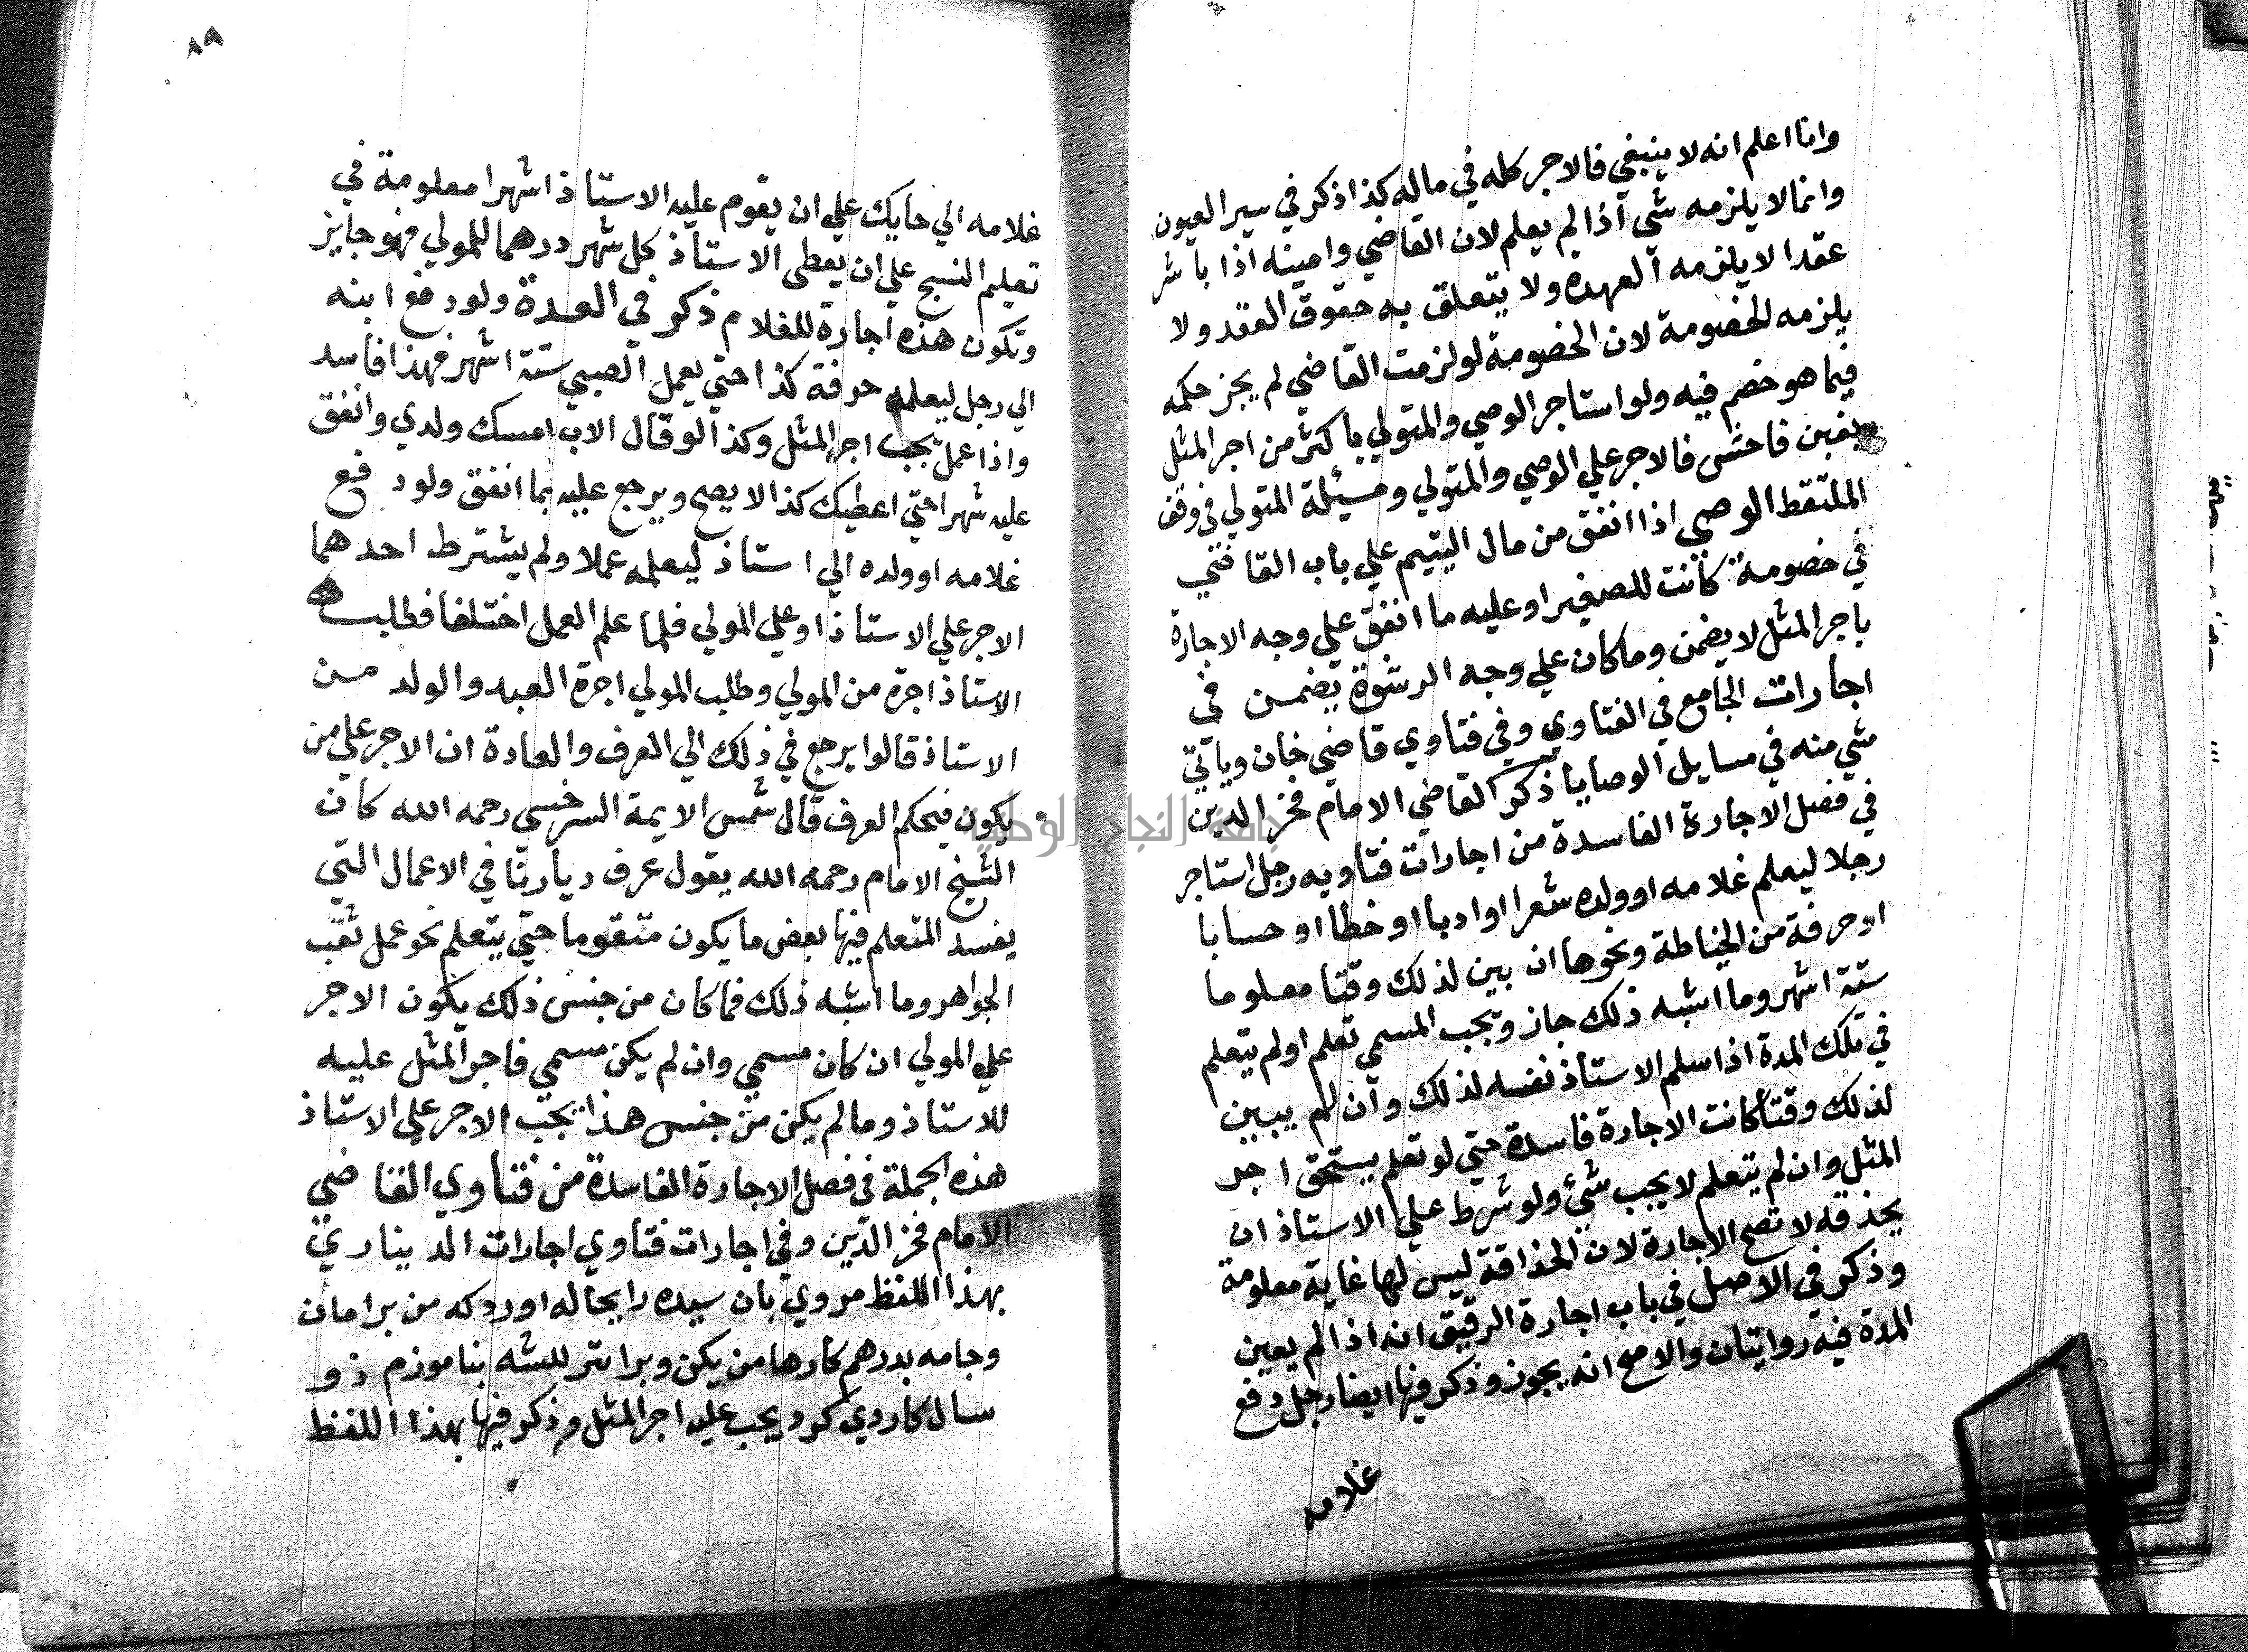 وانا اعلم انه لا ينبغي فالاجر كله في ماله كذا ذكر في سير العيون
وانما لا يلزمه شي اذا لم يعلم لان القاضي وامينه اذا باشر
عقدا لا يلزمه العهده ولا يتعلق به حقوق العقد ولا
يلزمه الخصومة لان الخصومة لو لزمت القاضي لم يجز حكمه
فيما هو خصم فيه ولو استاجر الوصي والمتولي باكثر من اجر المثل
بغبن فاحش فالاجر علي الوصي والمتولي ومسئلة المتولي في وقف
الملتقط الوصي اذا انفق من مال اليتيم علي باب القاضي
في خصومة كانت للصغير او عليه ما انفق علي وجه الاجارة
باجر المثل لا يضمن وما كان علي وجه الرشوة يضمن في
اجارات الجامع في الفتاوي وفي فتاوي قاضي خان وياتي
شي منه في مسايل الوصايا ذكر القاضي الامام فخر الدين
في فصل الاجارة الفاسدة من اجارات فتاويه رجل استاجر
رجلا ليعلم غلامه او ولده شعرا او ادبا او خطا او حسابا
او حرفة من الخياطة ونحوها ان بين لذلك وقتا معلوما
ستة اشهر وما اشبه ذلك جاز ويجب المسمي تعلم او لم يتعلم
في تلك المدة اذا سلم الاستاذ نفسه لذلك وان لم يبين
لذلك وقتا كانت الاجارة فاسدة حتي لو تعلم يستحق اجر
المثل وان لم يتعلم لا يجب شئ ولو شرط علي الاستاذ ان
يحذقه لا تصح الاجارة لان الحذاقة ليس لها غاية معلومة
وذكر في الاصل في باب اجارة الرقيق انه اذا لم يعين
المدة فيه روايتان والاصح انه يجوز وذكر فيها ايضا رجل دفع
غلامه
٨٩
غلامه الي حايك علي ان يقوم عليه الاستاذ اشهرا معلومة في
تعليم النسج علي ان يعطى الاستاذ كل شهر درهما للمولي فهو جايز
وتكون هذه اجارة للغلام ذكر في العدة ولو دفع ابنه
الي رجل ليعلمه حرفة كذا حتي يعمل الصبي ستة اشهر فهذا فاسد
واذا عمل يجب اجر المثل وكذا لو قال الاب امسك ولدي وانفق
عليه شهرا حتي اعطيك كذا لا يصح ويرجع عليه بما انفق ولو دفع
غلامه او ولده الي استاذ ليعلمه عملا ولم يشترط احدهما
الاجر علي الاستاذ او علي المولي فلما علم العمل اختلفا فطلب
الاستاذ اجرة من المولي وطلب المولي اجرة العبد والولد من
الاستاذ قالوا يرجع في ذلك الي العرف والعادة ان الاجر علي من
يكون فيحكم العرف قال شمس الايمة السرخسى رحمه الله كان
الشيخ الامام رحمه الله يقول عرف ديارنا في الاعمال التي
يفسد المتعلم فيها بعض ما يكون متقوما حتي يتعلم نحو عمل ثقب
الجواهر وما اشبه ذلك فما كان من جنس ذلك يكون الاجر
علي المولي ان كان مسمي وان لم يكن مسمي فاجر المثل عليه
للاستاذ وما لم يكن من جنس هذا يجب الاجر علي الاستاذ
هذه الجملة في فصل الاجارة الفاسدة من فتاوي القاضي
الامام فخر الدين وفي اجارات فتاوي اجارات الديناري
بهذا اللفظ مروي بان سيده را بحاله اوردكه من برامان
وجامه بدرهم كارها من يكن وبرا نتر للشه بناموزم ذو
سال كار وي كرد يجب عليه اجر المثل وذكر فيها بهذا اللفظ
جامعة النجاح الوطنية